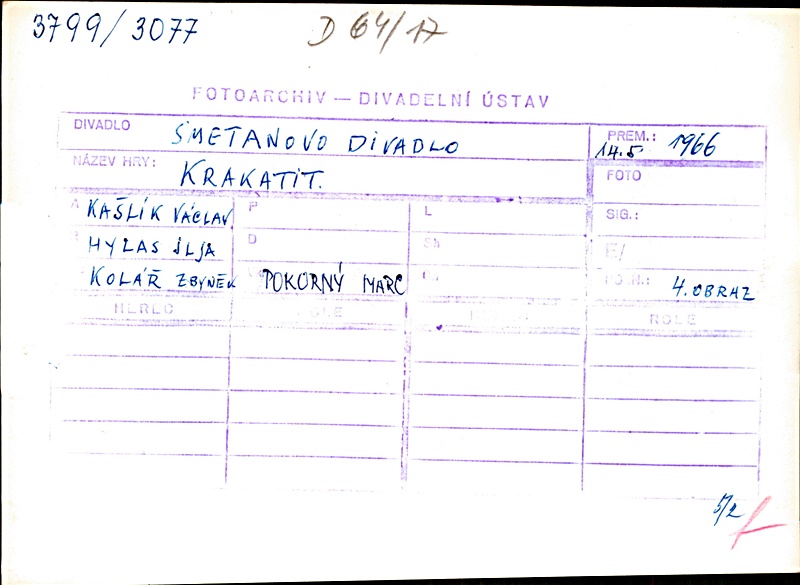 3799/3077 D 64/17
FOTOARCHIV — DIVADELNÍ ÚSTAV
DIVADLO SMETANOVO DIVADLO PREM.: 14.5 1966
NÁZEV HRY: KRAKATIT. FOTO
A KAŠLÍK VÁCLAV P L SIG.:
HYLAS ILJA D Sh E/
KOLÁŘ ZBYNĚK POKORNÝ MARC 4. OBRAZ
HEREC ROLE
5/2